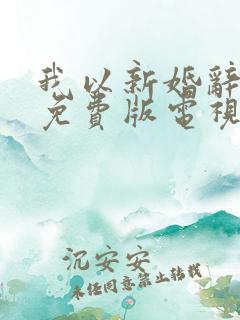 我以新婚辭
免費版電視
沉安安
未经同意禁止转载